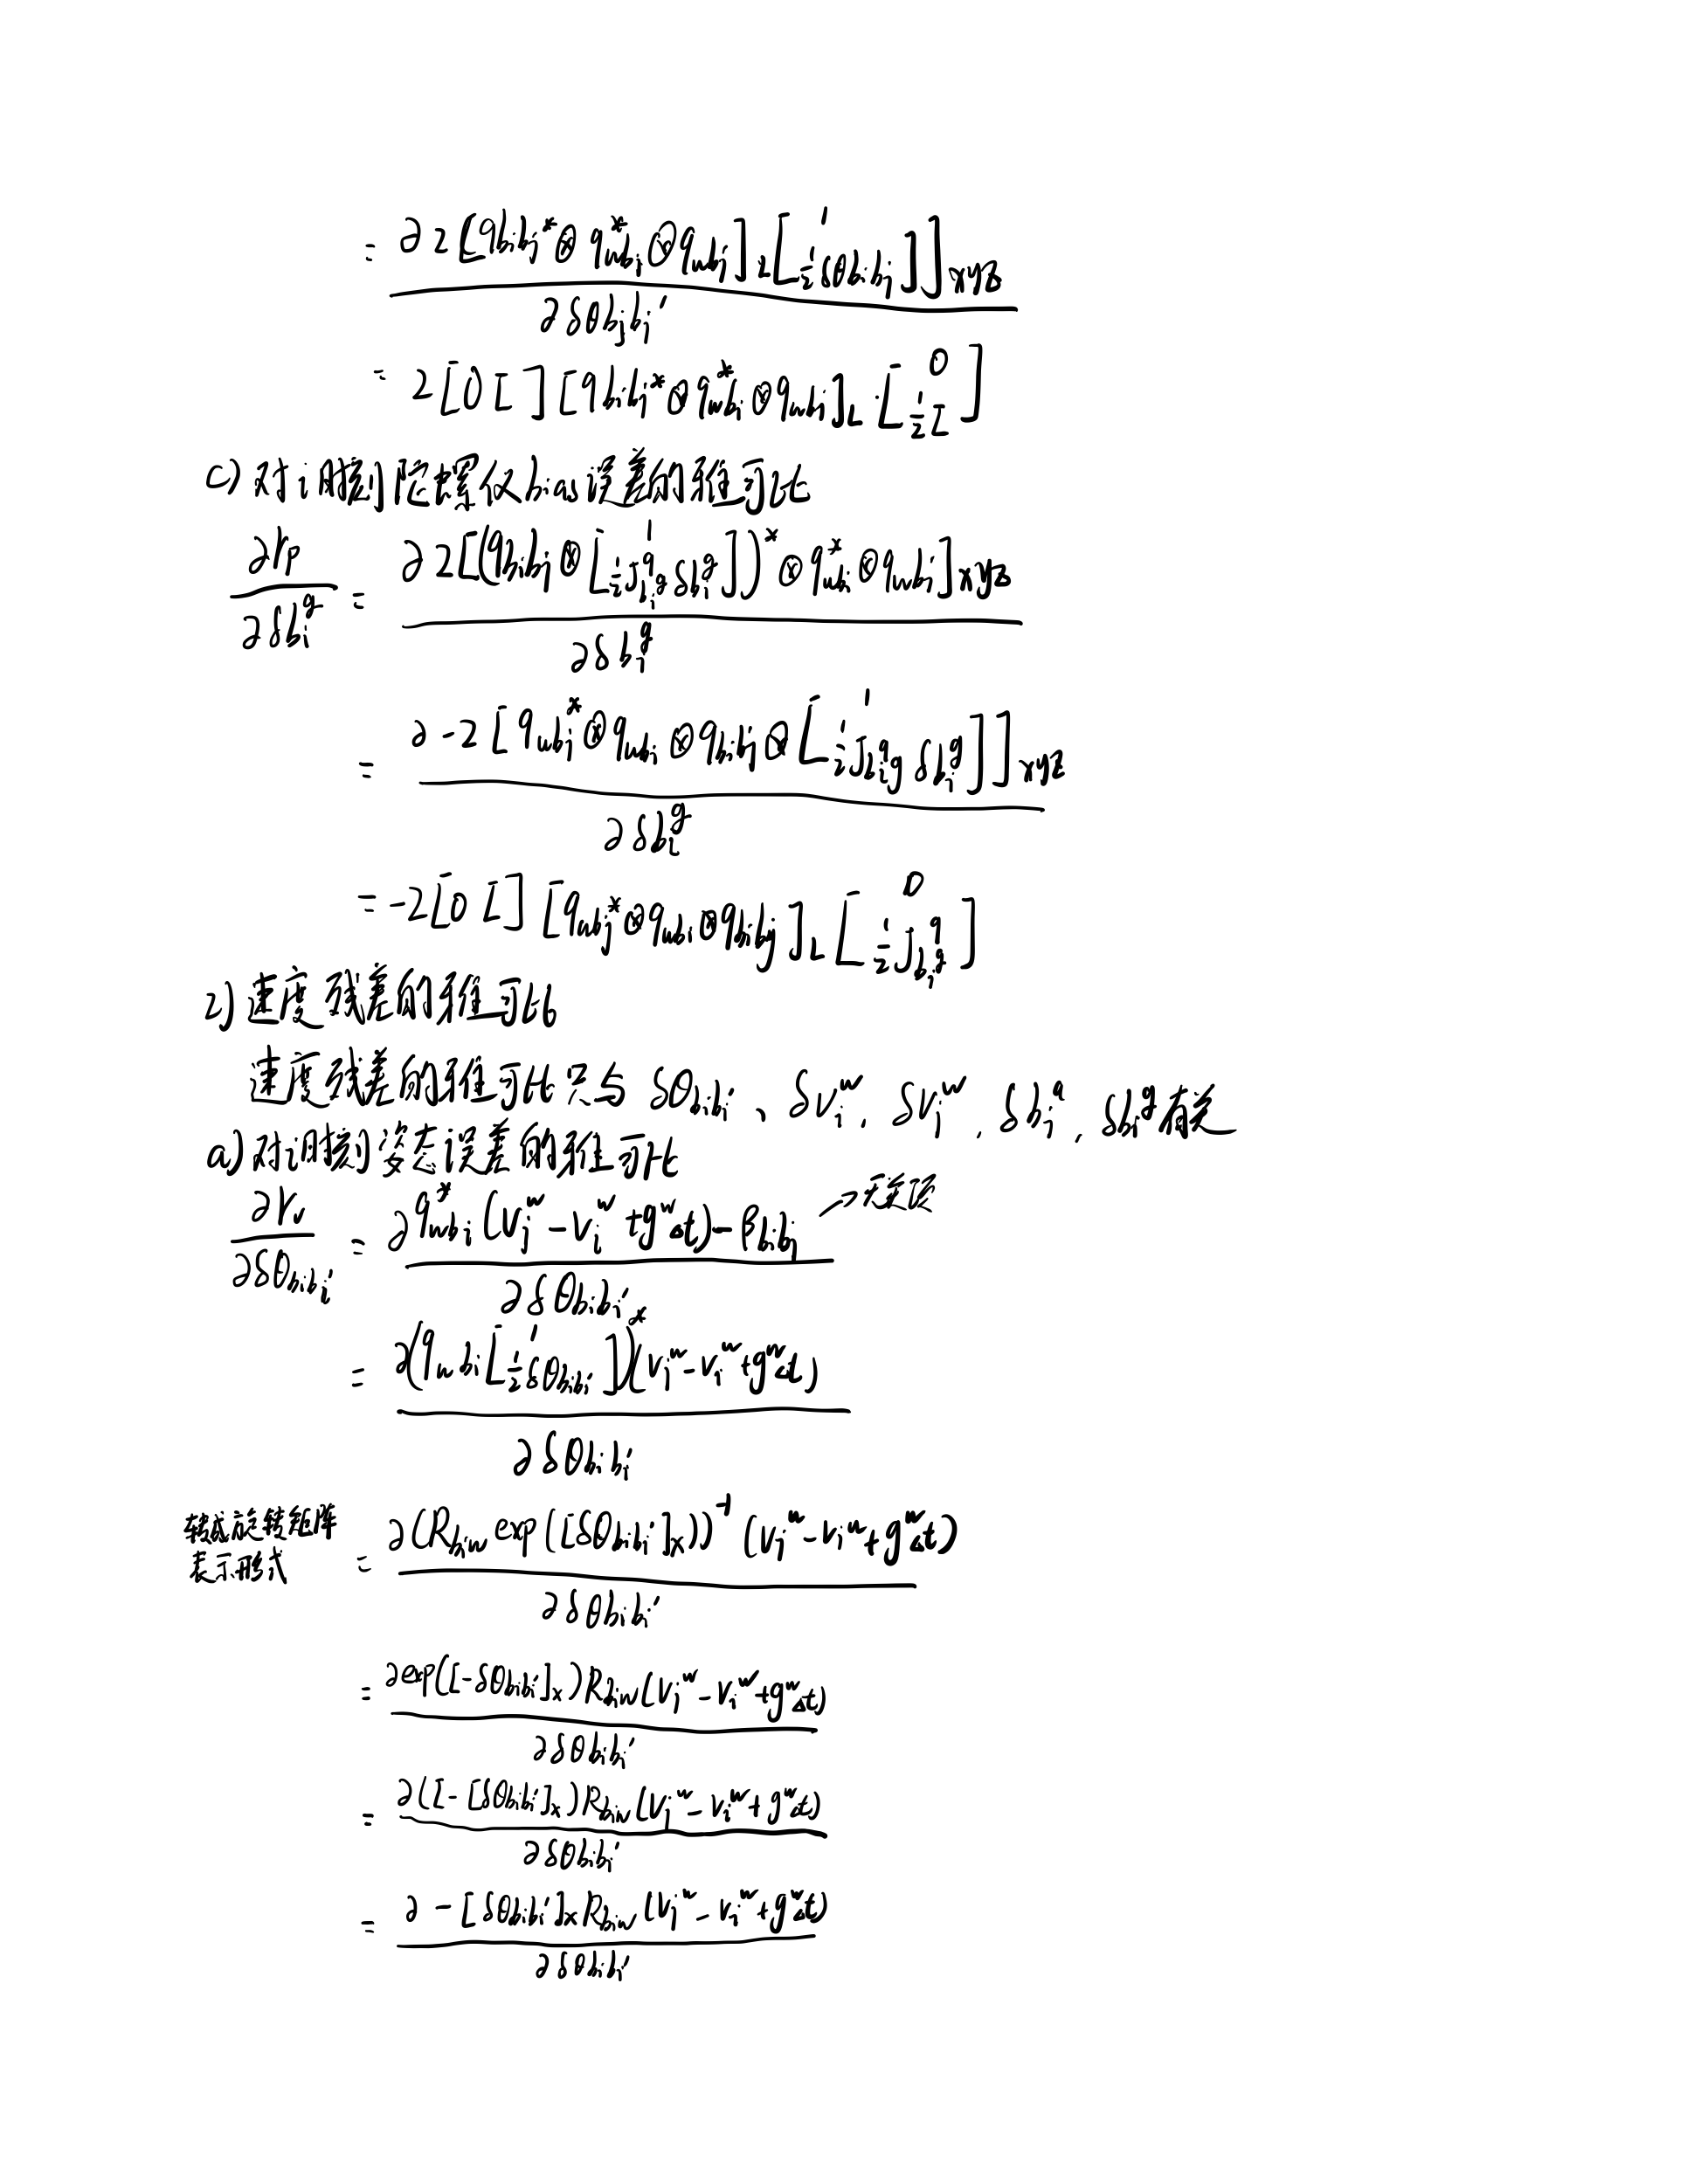 = ∂2[[q_{b_ib_j}^*⊗q_{wb_i}^*⊗q_{wb_j}]_L[1; ½δθ_{b_ib_j}]]_{xyz} / ∂δθ_{b_jb_j'}
= 2[0 I][q_{b_ib_j}^*⊗q_{wb_i}^*⊗q_{wb_j}]_L·[0; ½I]
c) 对i时刻陀螺仪bias误差的雅可比
∂r_p/∂δb_i^g = ∂2[(q_{b_ib_j}⊗[1; ½J_{b_i^g}^q δb_i^g])^*⊗q_{wb_i}^*⊗q_{wb_j}]_{xyz} / ∂δb_i^g
= ∂-2[q_{wb_j}^*⊗q_{wb_i}⊗q_{b_ib_j}⊗[1; ½J_{b_i^g}^q δb_i^g]]_{xyz} / ∂δb_i^g
= -2[0 I][q_{wb_j}^*⊗q_{wb_i}⊗q_{b_ib_j}]_L[0; ½J_{b_i^g}^q]
2) 速度残差的雅可比
速度残差的雅可比只与 δθ_{b_ib_i'}、δv_i^w, δv_j^w, δb_i^a, δb_i^g有关
a) 对i时刻姿态误差的雅可比
∂r_v/∂δθ_{b_ib_i'} = ∂q_{wb_i}^*(v_j^w-v_i^w+g^wΔt)-β_{b_ib_j} / ∂δθ_{b_ib_i'} →无关项
= ∂(q_{wb_i}[1; ½δθ_{b_ib_i'}])^*(v_j^w-v_i^w+g^wΔt) / ∂δθ_{b_ib_i'}
转成旋转矩阵
表示形式
= ∂(R_{b_iw}exp([δθ_{b_ib_i'}]_×))^{-1}(v_j^w-v_i^w+g^wΔt) / ∂δθ_{b_ib_i'}
= ∂exp([-δθ_{b_ib_i'}]_×)R_{b_iw}(v_j^w-v_i^w+g^wΔt) / ∂δθ_{b_ib_i'}
= ∂(I-[δθ_{b_ib_i'}]_×)R_{b_iw}(v_j^w-v_i^w+g^wΔt) / ∂δθ_{b_ib_i'}
= ∂-[δθ_{b_ib_i'}]_×R_{b_iw}(v_j^w-v_i^w+g^wΔt) / ∂δθ_{b_ib_i'}